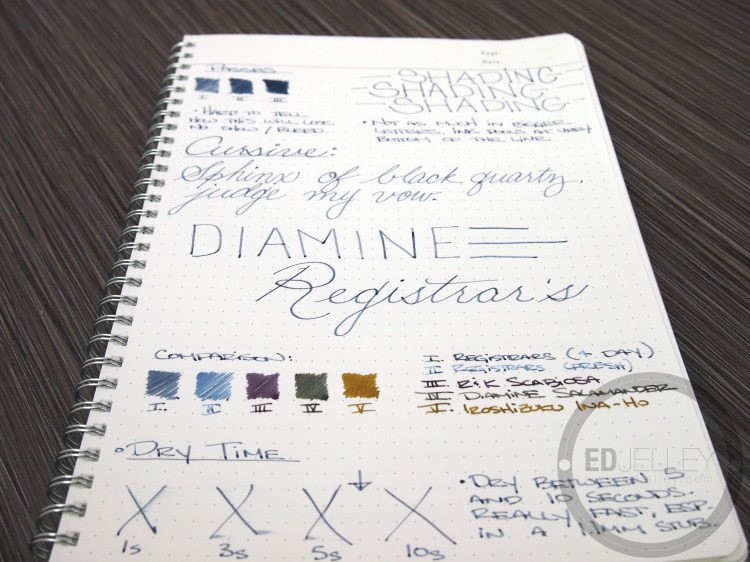 Page:
Date:
PASSES
I II III
• HARD TO TELL
HOW THIS WILL LOOK
NO SHOW / BLEED.
SHADING
SHADING
SHADING
• NOT AS MUCH IN BIGGER
LETTERS. INK POOLS AT VERY
BOTTOM OF THE LINE.
Cursive:
Sphinx of black quartz
judge my vow.
DIAMINE
Registrar's
COMPARISON:
I. II III IV V
I. REGISTRARS (+ DAY)
II REGISTRARS (FRESH)
III. R&K SCABIOSA
IV DIAMINE SALAMANDER
V. IROSHIZUKU INA-HO
• DRY TIME
X X X X
1s 3s 5s 10s
• DRY BETWEEN 5
AND 10 SECONDS.
REALLY FAST, ESP.
IN A 1.1MM STUB.
EDJELLEY